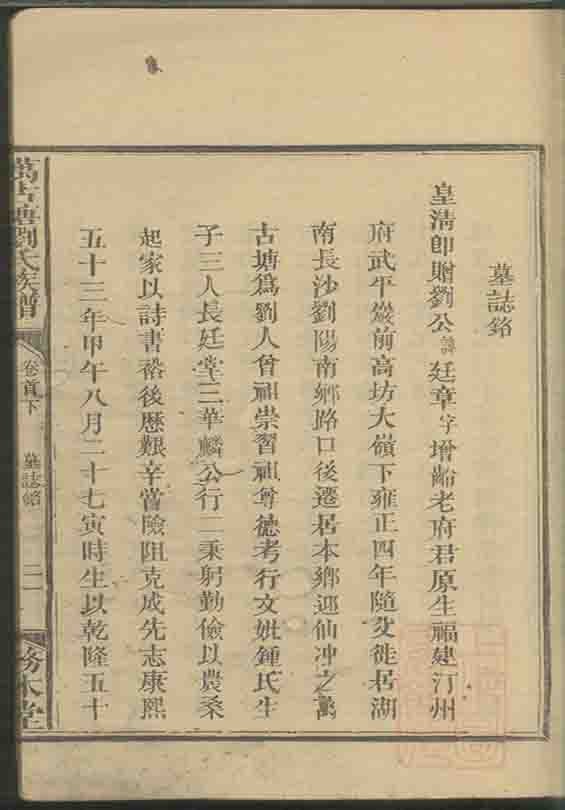 墓誌銘
皇淸即贈劉公諱廷章字增齡老府君原生福建汀州
府武平巖前高坊大嶺下雍正四年隨父徙居湖
南長沙劉陽南鄉路口後遷居本鄉迎仙冲之萬
古塘爲劉人曾祖崇習祖尊德考行文妣鍾氏生
子三人長廷堂三華麟公行二秉躬勤儉以農桑
起家以詩書裕後歷艱辛嘗險阻克成先志康熙
五十三年甲午八月二十七寅時生以乾隆五十
萬古塘劉氏族譜
卷首下
墓誌銘
二
務本堂